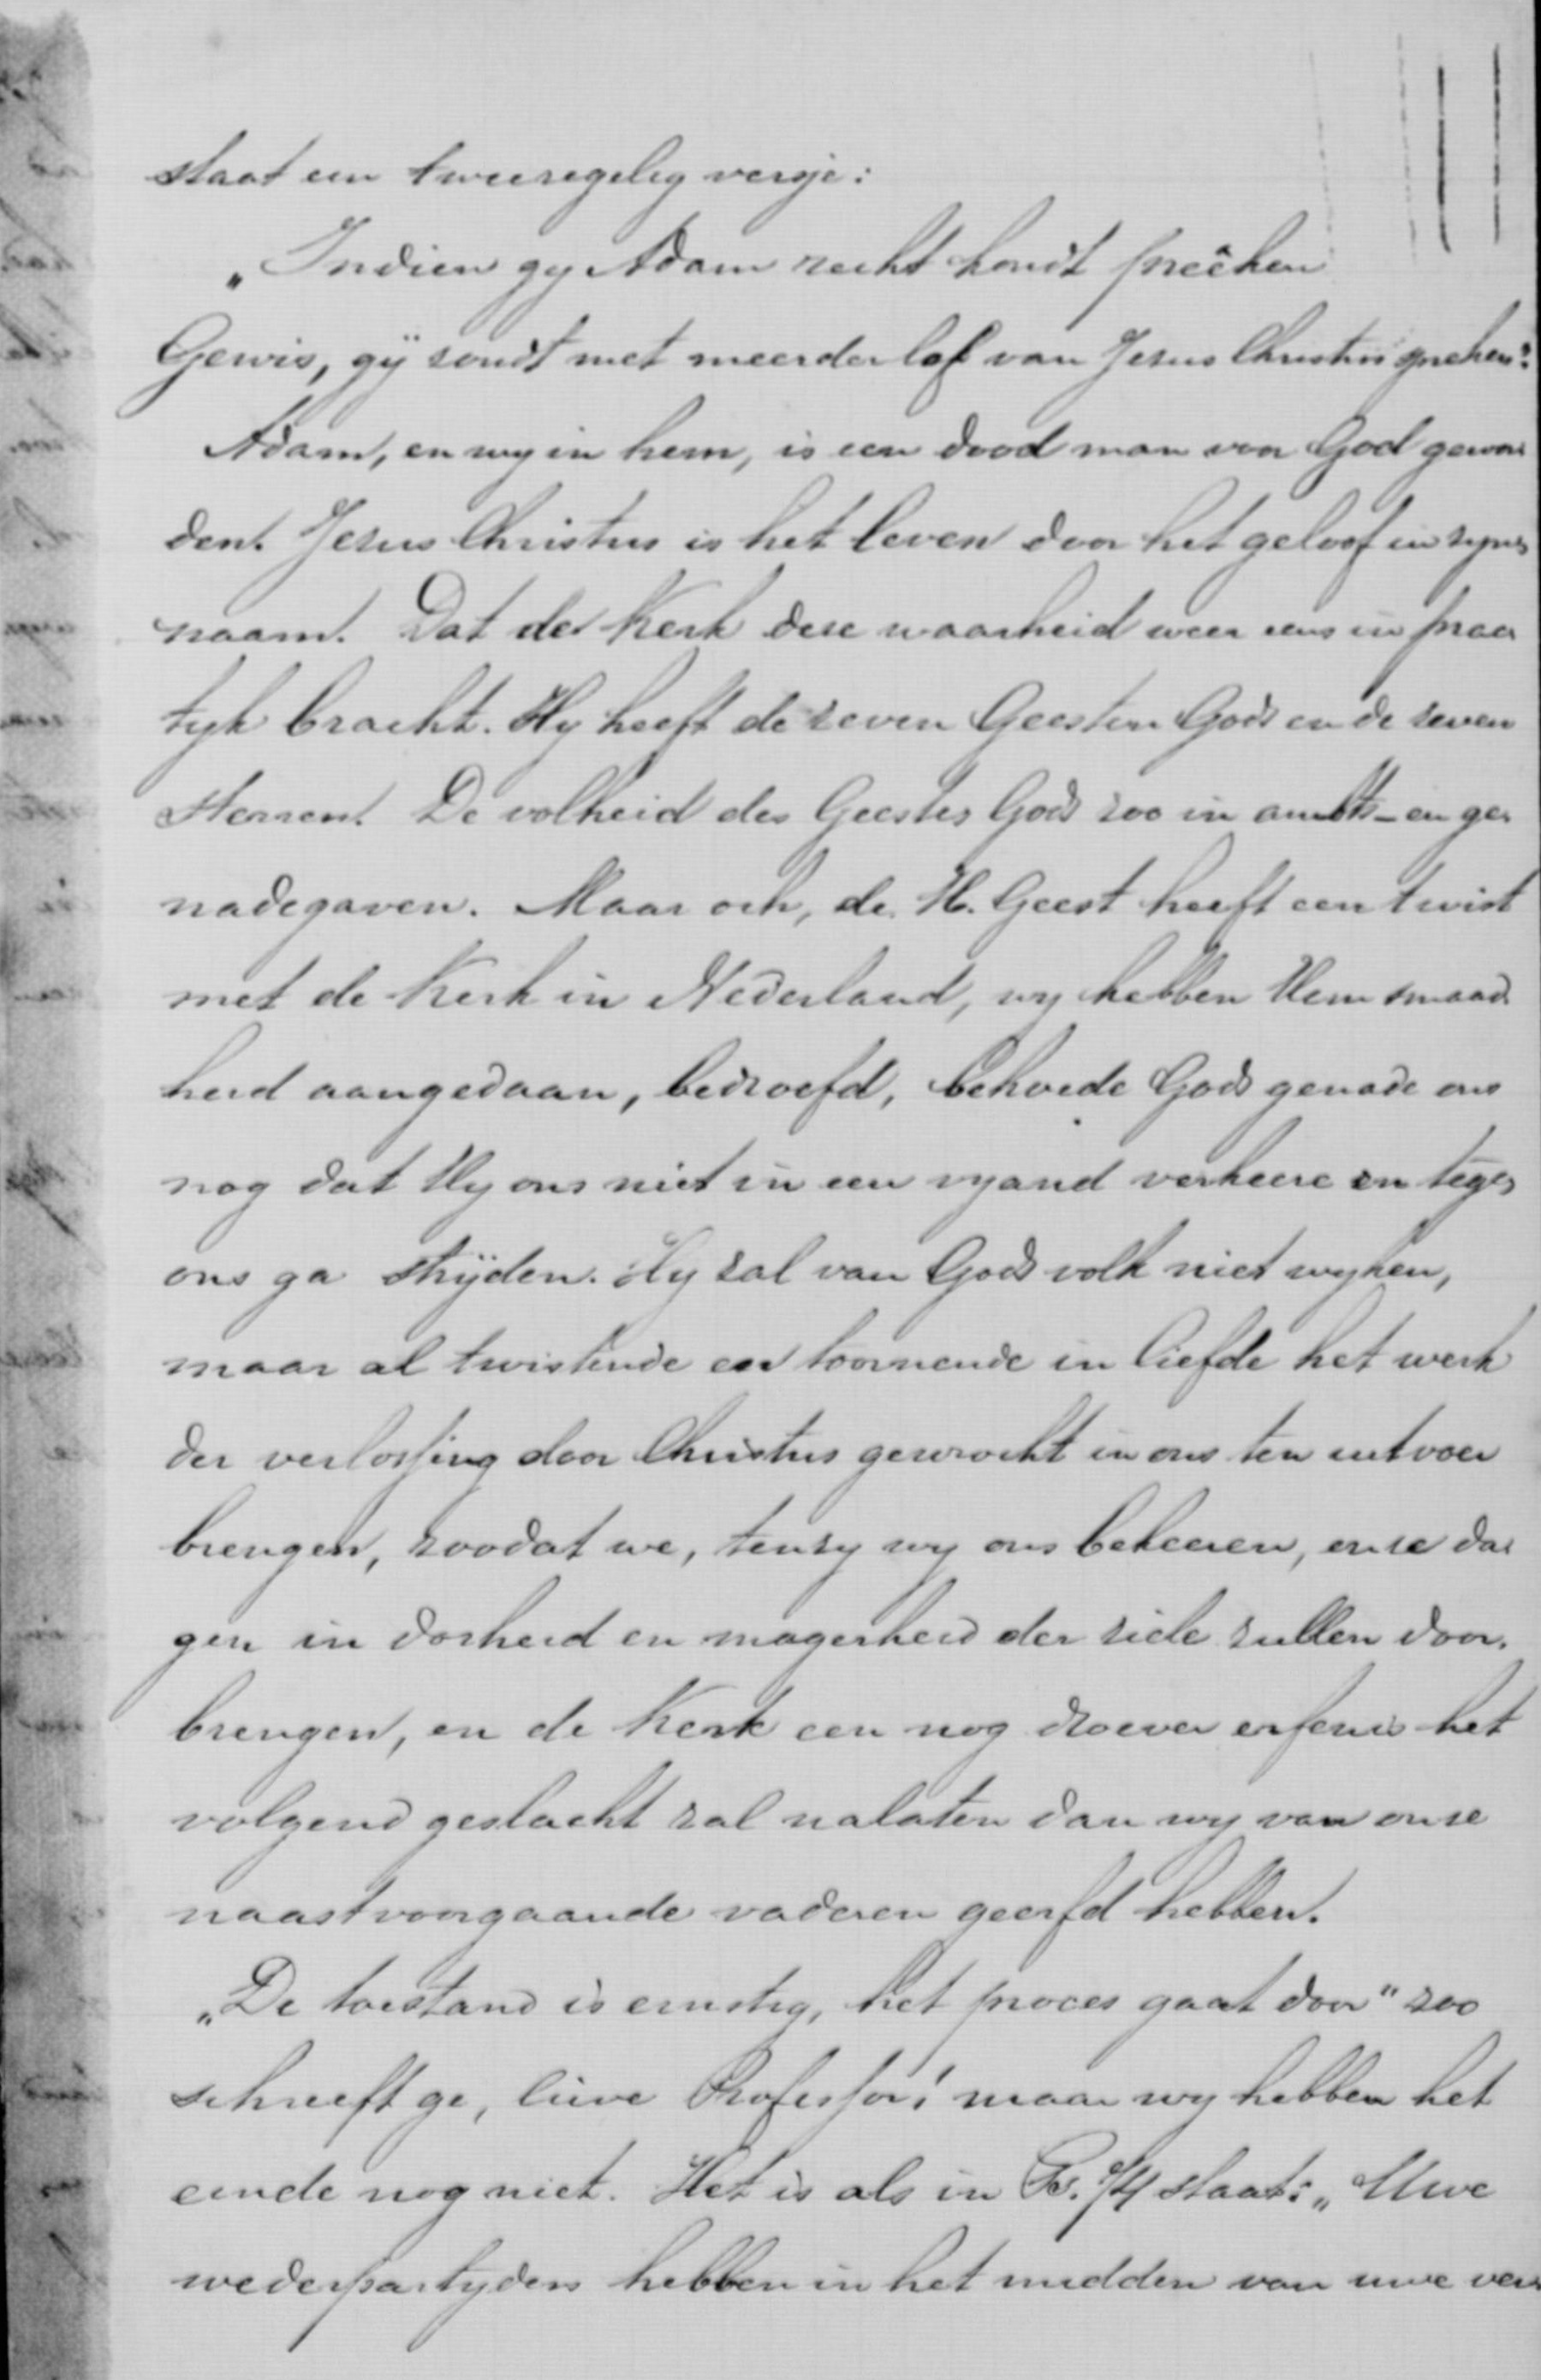 staat een tweeregelig versje:
„Indien gy Adam recht kondt preêken
Gewis, gÿ zoudt met meerder lof van Jezus Christus spreken."
Adam, en wy in hem, is een dood man voor God gewor
den. Jezus Christus is het leven door het geloof in zynen
naam. Dat de Kerk deze waarheid weer eens in prac
tyk bracht. Hy heeft de zeven Geesten Gods en de zeven
sterren. De volheid des Geestes Gods zoo in ambts- en ge-
nadegaven. Maar och, de H. Geest heeft een twist
met de Kerk in Nederland, wy hebben Hem smaad-
heid aangedaan, bedroefd, behoede Gods genade ons
nog dat Hy ons niet in een vyand verkeere en tegen
ons ga strÿden. Hy zal van Gods volk niet wyken,
maar al twistende en toornende in liefde het werk
der verlossing door Christus gewrocht in ons ten uitvoer
brengen, zoodat we, tenzy wy ons bekeeren, onze da-
gen in dorheid en magerheid der ziele zullen door-
brengen, en de Kerk een nog droever erfenis het
volgend geslacht zal nalaten dan wy van onze
naastvoorgaande vaderen geerfd hebben.
„De toestand is ernstig, het proces gaat door" zoo
schreeft ge, lieve Professor! maar wy hebben het
einde nog niet. Het is als in Ps. 74 staat: „Uwe
wederpartyders hebben in het midden van uwe ver